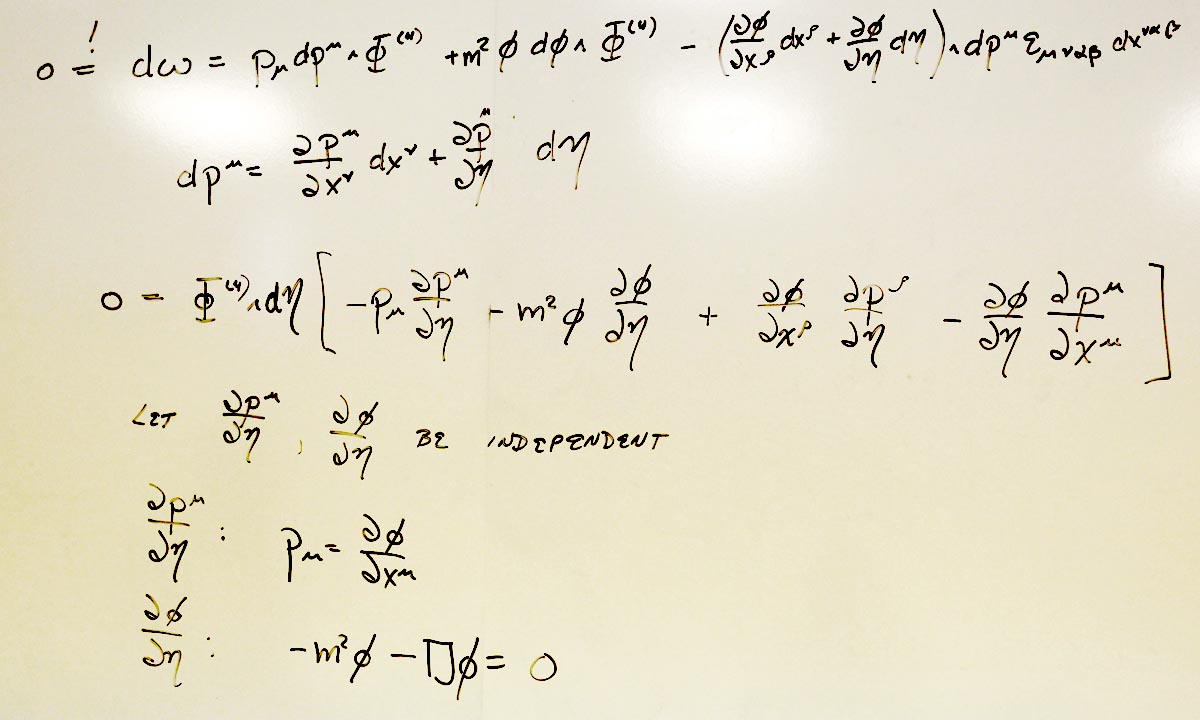 0 =! dω = pμ dp^μ ∧ Φ^(4) + m² φ dφ ∧ Φ^(4) − (∂φ/∂x^ρ dx^ρ + ∂φ/∂η dη) ∧ dp^μ ε_μναβ dx^ναβ
dp^μ = ∂p^μ/∂x^ν dx^ν + ∂p^μ/∂η dη
0 = Φ^(4) ∧ dη [ −pμ ∂p^μ/∂η − m² φ ∂φ/∂η + ∂φ/∂x^ρ ∂p^ρ/∂η − ∂φ/∂η ∂p^μ/∂x^μ ]
LET ∂p^μ/∂η , ∂φ/∂η BE INDEPENDENT
∂p^μ/∂η : pμ = ∂φ/∂x^μ
∂φ/∂η : −m²φ − □φ = 0